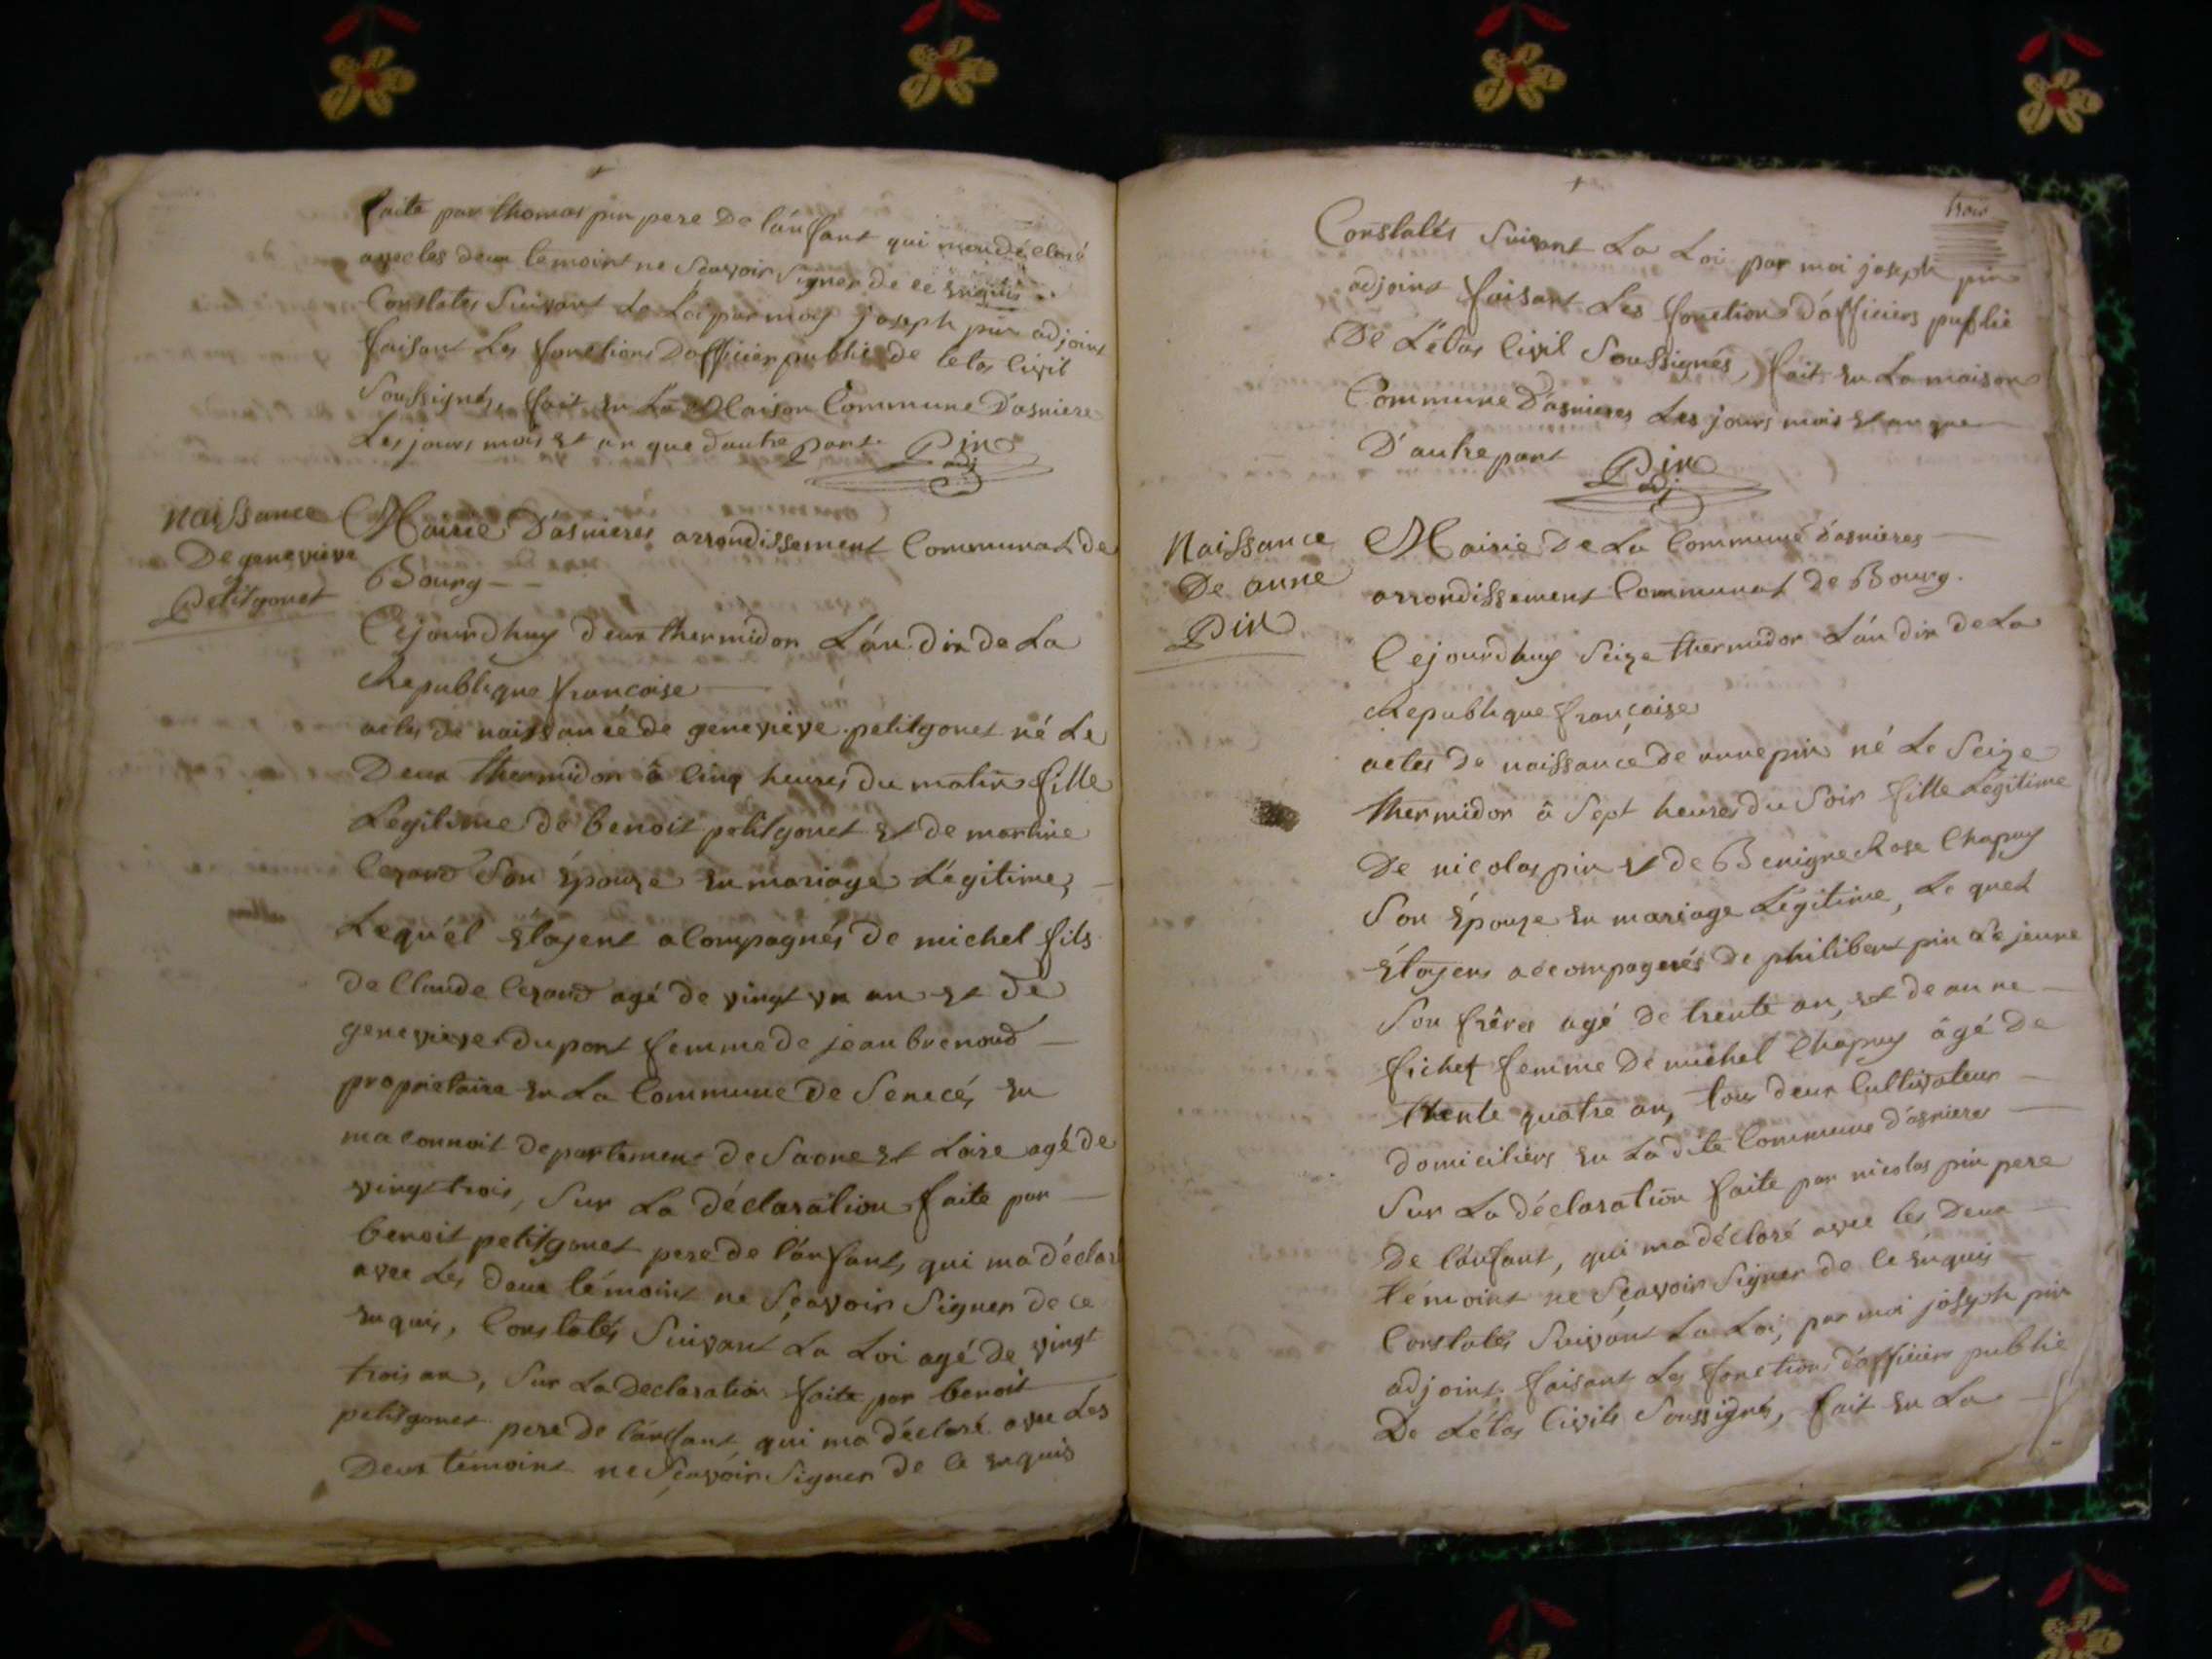 faite par thomas pin pere De l'anfant qui mon déclaré
avec les deux temoint ne Sçavoir Signer de ce enquis
Constatés Suivant La Loi par moy joseph pin adjoint
faisant Les fonctions Dofficier public de letas Civil
Soussignés, fait en La Maison Commune D'asniere
Les jours mois et an que dautre part. Pin
adj
Naissance
De genevieve
Petitgonet
Mairie D'asnieres arrondissement Communal de
Bourg
Cejourdhuy deux thermidor L'an dix de La
Republique francoise
actes de naissance de genevieve petitgonet né Le
Deux thermidor à Cinq heures du matin fille
Legitime de benoit petitgonet et de martine
Cezard Son épouze en mariage Légitime,
Lequél étayent acompagnés de michel fils
de Claude Cezard agé de vingt un an et de
genevieve dupont femme de jean brenoud
propriétaire en La Commune de Senecé, en
maconnoit département de Saone et Loire agé de
vingt trois, Sur La déclaration faite par
benoit petitgonet pere de l'anfant, qui ma déclaré
avec Les deux témoint ne Sçavoir Signer de ce
enquis, Constatés Suivant La Loi agé de vingt
trois an, Sur La declaration faite par benoit
petitgonet pere de l'anfant qui ma déclaré avec Les
Deux témoint ne Sçavoir Signer de ce enquis
trois
Constatés Suivant La Loi par moi joseph pin
adjoint faisant Les fonction d'officiers public
De L'étas Civil Soussignés, fait en La maison
Commune D'asnieres Les jours mois et an que
D'autre part Pin
adj
Naissance
De anne
Pin
Mairie De La Commune d'asnieres
arrondissement Communal de Bourg.
Cejourdhuy Seize thermidor L'an dix de La
Republique françaize
actes De naissance de anne pin né Le Seize
thermidor à Sept heures du Soir fille Légitime
De nicolas pin et de Benigne Rose Chapuy
Son épouze en mariage Légitime, Le quel
étayens accompagnés de philibert pin Le jeune
Son frêres agé de trente an, et de anne
fichet femme De michel Chapuy âgé de
trente quatre an, tous deux Cultivateur
domiciliers en La dite Commune d'asnieres
Sur La déclaration faite par nicolas pin pere
De l'anfant, qui ma déclaré avec les Deux
témoint ne Sçavoir Signer de ce enquis
Constatés Suivant La Loi, par moi joseph pin
adjoint faisant Les fonctions d'officiers public
De Létas Civile Soussignés, fait en La